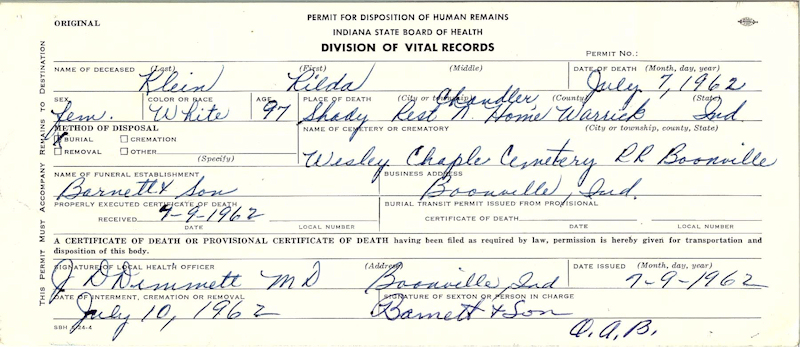 ORIGINAL
PERMIT FOR DISPOSITION OF HUMAN REMAINS
INDIANA STATE BOARD OF HEALTH
DIVISION OF VITAL RECORDS
PERMIT NO.:
THIS PERMIT MUST ACCOMPANY REMAINS TO DESTINATION
NAME OF DECEASED (Last) (First) (Middle) DATE OF DEATH (Month, day, year)
Klein Rilda July 7, 1962
SEX COLOR OR RACE AGE PLACE OF DEATH (City or township) (County) (State)
Chandler
Fem. White 97 Shady Rest N. Home Warrick Ind.
METHOD OF DISPOSAL NAME OF CEMETERY OR CREMATORY (City or township, county, State)
X BURIAL CREMATION
REMOVAL OTHER
(Specify)
Wesley Chaple Cemetery RR Boonville
NAME OF FUNERAL ESTABLISHMENT BUSINESS ADDRESS
Barnett & Son Boonville, Ind.
PROPERLY EXECUTED CERTIFICATE OF DEATH BURIAL TRANSIT PERMIT ISSUED FROM PROVISIONAL
RECEIVED 7-9-1962 CERTIFICATE OF DEATH
DATE LOCAL NUMBER DATE LOCAL NUMBER
A CERTIFICATE OF DEATH OR PROVISIONAL CERTIFICATE OF DEATH having been filed as required by law, permission is hereby given for transportation and
disposition of this body.
SIGNATURE OF LOCAL HEALTH OFFICER (Address) DATE ISSUED (Month, day, year)
J D Dimmett MD Boonville, Ind 7-9-1962
DATE OF INTERMENT, CREMATION OR REMOVAL SIGNATURE OF SEXTON OR PERSON IN CHARGE
July 10, 1962 Barnett & Son
O.A.B.
SBH